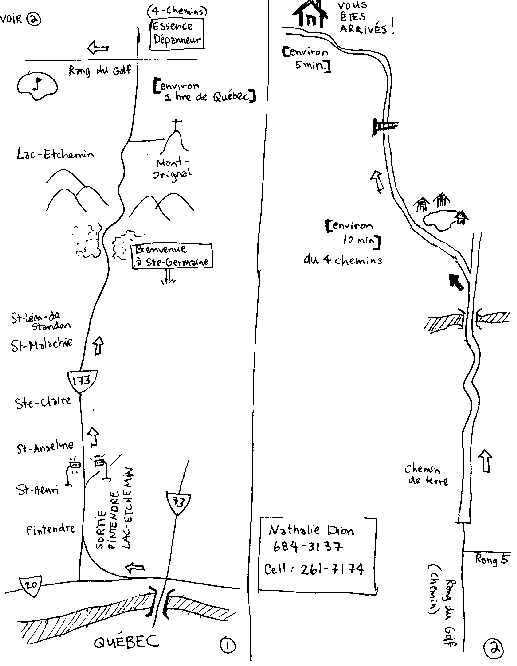 VOIR ②
(4-Chemins)
Essence
Dépanneur
Rang du Golf
[environ
1 hre de Québec]
Lac-Etchemin
Mont-
Orignal
Bienvenue
à Ste-Germaine
St-Léon-de
Standon
St-Malachie
173
Ste-Claire
St-Anselme
St-Henri
Pintendre
SORTIE
PINTENDRE
LAC-ETCHEMIN
73
20
QUÉBEC
①
VOUS
ÊTES
ARRIVÉS!
[environ
5 min.]
[environ
10 min]
du 4 chemins
Chemin
de terre
Nathalie Dion
684-3137
Cell: 261-7174
Rang 5
Rang du Golf
(chemin)
②